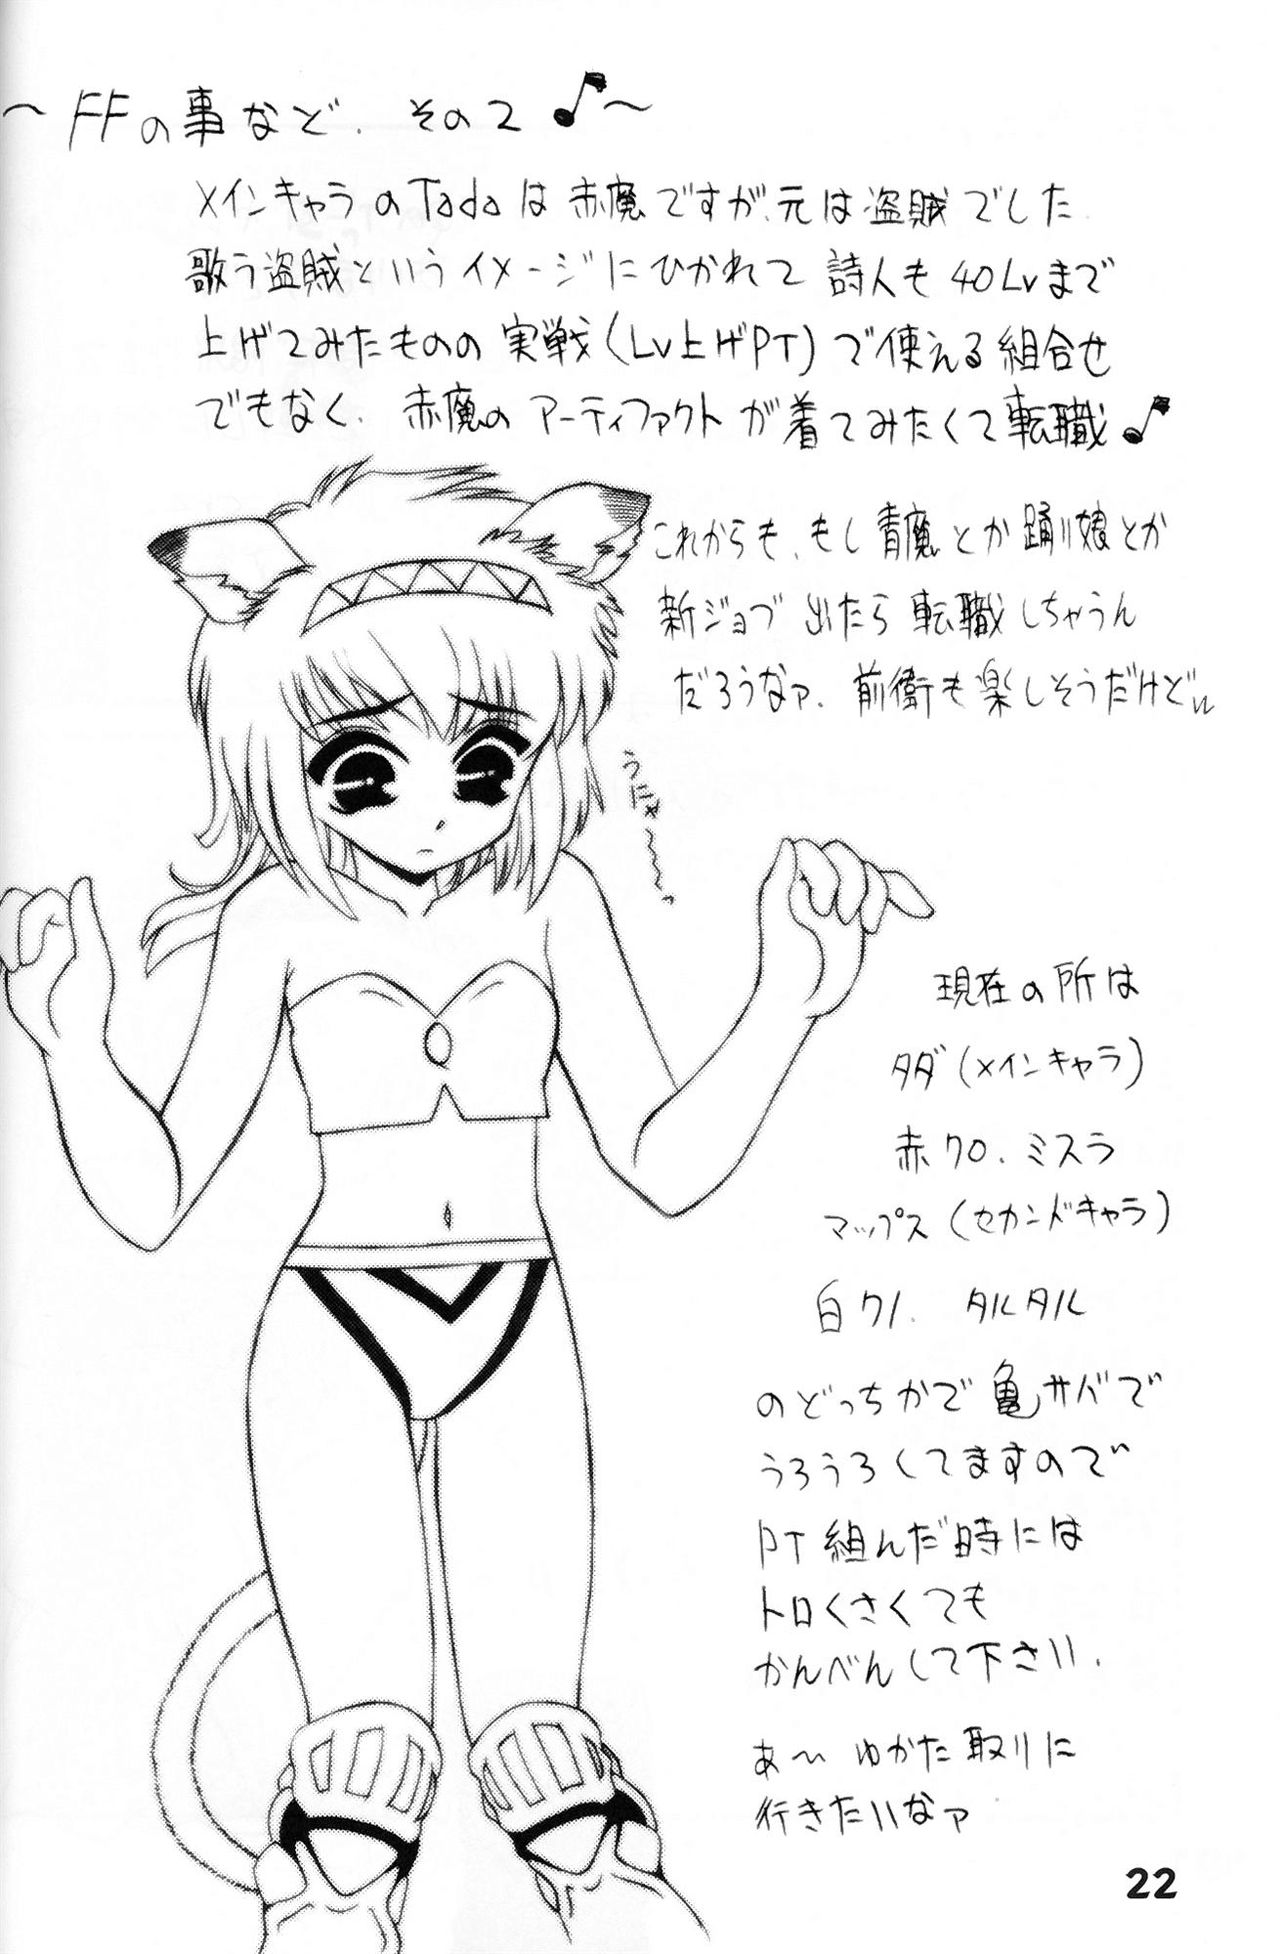 ～FFの事など、その2♪～
メインキャラのTadaは赤魔ですが、元は盗賊でした
歌う盗賊というイメージにひかれて詩人も40Lvまで
上げてみたものの実戦(Lv上げPT)で使える組合せ
でもなく、赤魔のアーティファクトが着てみたくて転職♪
これからも、もし青魔とか踊り娘とか
新ジョブ出たら転職しちゃうん
だろうなァ、前衛も楽しそうだけど
うにゃ〜〜〜っ
現在の所は
タダ(メインキャラ)
赤70、ミスラ
マップス(セカンドキャラ)
白71、タルタル
のどっちかで亀サバで
うろうろしてますので
PT組んだ時には
トロくさくても
かんべんして下さい、
あ～ゆかた取りに
行きたいなァ
22